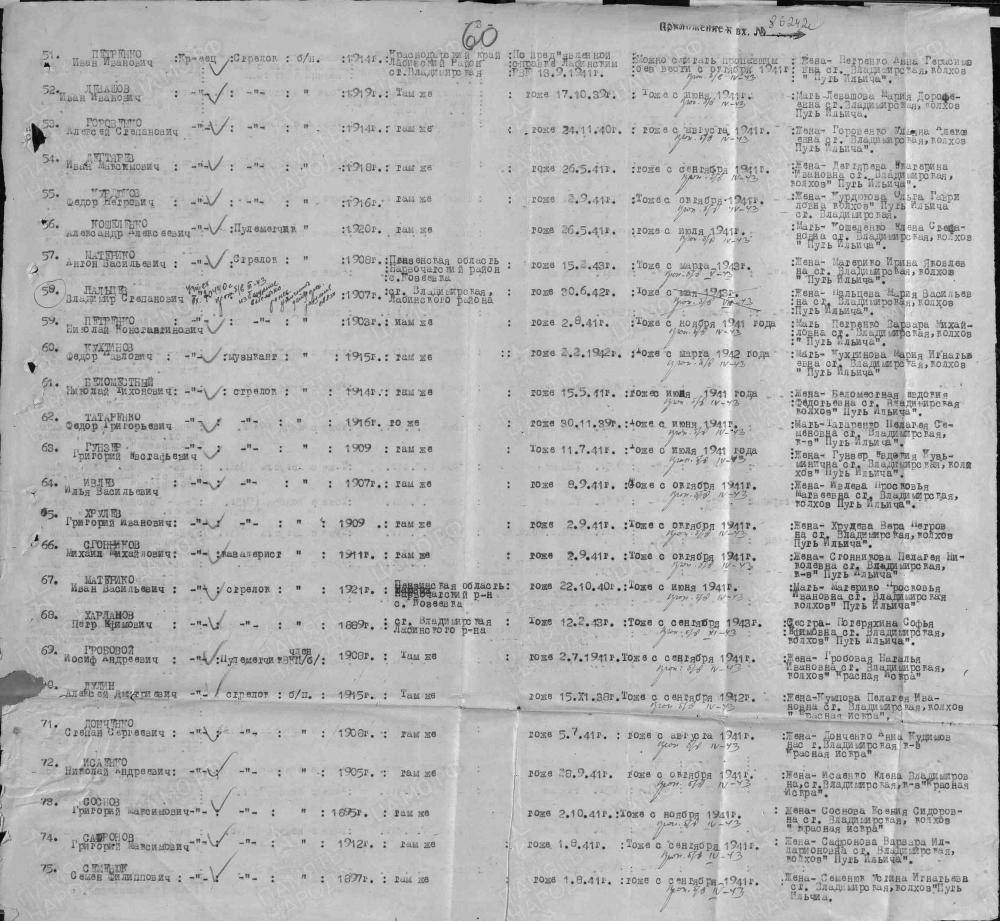 60
Приложение к вх. № 86242с
51. ПЕТРЕНКО
Иван Иванович :Кр-аец :Стрелок : б/п. :1914г.: Краснодарский край :По пред"явленной :Можно считать пропавшим : Жена- Петренко Анна Герасимо
Лабинский Район справке Лабинским без вести с октября 1941г вна ст. Владимирская, колхоз
ст.Владимирская РВК 18.9.1941г. " Путь Ильича".
52. ЛЕВАШОВ
Иван Иванович -"- : -"- : " :1919г.: Там же : тоже 17.10.39г. :Тоже с июня 1941г. :Мать- Левашова Мария Дорофе-
евна ст.Владимирская, колхоз
Путь Ильича.
53. ГОРОВЕНКО
Алексей Степанович -"- : -"- : " :1914г.: там же : тоже 24.11.40г. : тоже с августа 1941г. :Жена- Горовенко Ульяна Алекс
евна ст. Владимирская, колхоз
Путь Ильича".
54. ДЕГТЯРЕВ
Иван Максимович -"- : -"- : " :1918г.: там же : тоже 26.5.41г. :тоже с сентября 1941г. :Жена- Дегтярева Екатерина
Ивановна ст. Владимирская,
колхоз" Путь Ильича".
55. КУРДЮКОВ
Федор Петрович -"- : -"- : " :1916г. там же : тоже 2.9.41г. :Тоже с октября 1941г. :Жена- Курдюкова Ольга Гаври
ловна колхоз" Путь Ильича
ст. Владимирская.
56. КОШЕЛЕНКО
Александр Алексеевич -"- :Пулеметчик " :1920г. там же : тоже 26.5.41г. :тоже с июля 1941г. :Мать- Кошеленко Елена Стефа-
новна ст. Владимирская, колхоз
" Путь Ильича".
57. МАТЕРИКО
Антон Васильевич -"- :Стрелок : " :1908г.:Пензенская область : тоже 15.2.43г. :Тоже с марта 1943г. :Жена- Материко Ирина Яковлев
Нарвочатский район на ст. Владимирская, колхоз
с.Козеевка " Путь Ильича".
58. ПАЛЬЦЕВ
Владимир Степанович :1907г.: ст. Владимирская, : тоже 30.6.42г. :Тоже с мая 1943г. :Жена- Пальцева Мария Васильев
Лабинского района на ст. Владимирская, колхоз
" Путь Ильича".
59. ПЕТРЕНКО
Николай Константинович -"- : -"- : " :1903г.: Там же : тоже 2.8.41г. :Тоже с ноября 1941 года :Мать Петренко Варвара Михай-
ловна ст. Владимирская, колхоз
" Путь Ильича"
60. КУХТИНОВ
Федор Павлович : -"- :музыкант : " :1915г.: там же :: тоже 2.2.1942г. :Тоже с марта 1942 года :Мать- Кухтинова Мария Игнатье
евна ст. Владимирская, колхоз
" Путь Ильича"
61. БЕЛОМЕСТНЫЙ
Николай Тихонович: -"- : стрелок : " :1914г.: там же : тоже 15.5.41г. :тоже с июня 1941 года :Жена- Беломестная Евдокия
Федотьевна ст. Владимирская
колхоз" Путь Ильича".
62. ТАТАРЕНКО
Федор Григорьевич : -"- : -"- : " :1916г. то же : тоже 30.11.39г. :Тоже с июня 1941г. :Мать-Татаренко Пелагея Се-
меновна ст. Владимирская,
к-з" Путь Ильича".
63. ГУНЗЕР
Григорий Евстафьевич -"- : -"- : " :1909 : там же : Тоже 11.7.41г. :Тоже с июля 1941 года :Жена- Гунзер Евдокия Кузь-
минична ст. Владимирская, колх
хоз" Путь Ильича".
64. ИВЛЕВ
Илья Васильевич -"- : -"- : " :1907г.: там же : тоже 8.9.41г. :Тоже с октября 1941г. :Жена- Ивлева Просковья
Матвеевна ст. Владимирская,
колхоз" Путь Ильича".
65. ХРУЛЕВ
Григорий Иванович: -"- : -"- : " : 1909 : там же : тоже 2.9.41г. :Тоже с октября 1941г. :Жена- Хрулева Вера Петров
на ст. Владимирская, колхоз
Путь Ильича".
66. СГОННИКОВ
Михаил Михайлович: -"- :кавалерист " :1911г.: там же : тоже 2.9.41г. :Тоже с октября 1941г. :Жена- Сгонникова Пелагея Ни-
колевна ст. Владимирская,
к-з" Путь Ильича"
67. МАТЕРИКО
Иван Васильевич : -"- : стрелок : " : 1921г.: Пензинская область: тоже 22.10.40г.:Тоже с июня 1941г. :Мать- Материко Просковья
Нарвочатский р-н Ивановна ст. Владимирская
с. Козеевка колхоз" Путь Ильича"
68. ХАРЛАНОВ
Петр Ефимович : -"- : -"- : " : 1889г.: ст. Владимирская : Тоже 12.2.43г. :Тоже с сентября 1943г. :Сестра- Потеряхина Софья
Лабинского р-на Ефимовна ст. Владимирская,
колхоз" Путь Ильича"
69. ГРОБОВОЙ член
Иосиф Андреевич : -"- :Пулеметчик ВКП/б/: 1908г.: Там же : тоже 2.7.1941г.Тоже с сентября 1941г. :Жена- Гробовая Наталья
Ивановна ст. Владимирская,
колхоз" Красная искра"
Алексей Дмитриевич -"- : стрелок : б/п. : 1915г.: Там же : тоже 15.X1.38г.Тоже с сентября 1942г. :Жена-Кумпова Пелагея Ива-
новна ст. Владимирская, колхоз
" Красная искра".
71. ДОНЧЕНКО
Степан Сергеевич : -"- : -"- : " : 1908г.: там же : тоже 5.7.41г. : тоже с августа 1941г. :Жена- Донченко Анна Кудимов
на ст.Владимирская к-з
"Красная искра"
72. ИСАЕНКО
Николай Андреевич: -"- : -"- : " : 1905г.: там же : тоже 28.9.41г. тоже с октября 1941г. :Жена- Исаенко Елена Владимиров
на, ст.Владимирская, к-з"Красная
искра".
73. СОСНОВ
Григорий Максимович- -"- : -"- : " : 1895г.: там же : тоже 2.10.41г.:Тоже с ноября 1941г. : Жена- Соснова Ксения Сидоров-
на ст. Владимирская, колхоз
" Красная искра"
74. САФРОНОВ
Григорий Максимович- -"- : -"- : " : 1912г.: там же : тоже 1.8.41г. :Тоже с сентября 1941г. : Жена- Сафронова Варвара Ил-
ларионовна ст. Владимирская,
колхоз" Путь Ильича".
75. СЕМЕНЮК
Семен Филиппович : -"- : -"- : " : 1897г. : там же : тоже 1.8.41г. :тоже с сентября 1941г. :Жена- Семенюк Устина Игнатьева
ст. Владимирская, колхоз"Путь
Ильича.